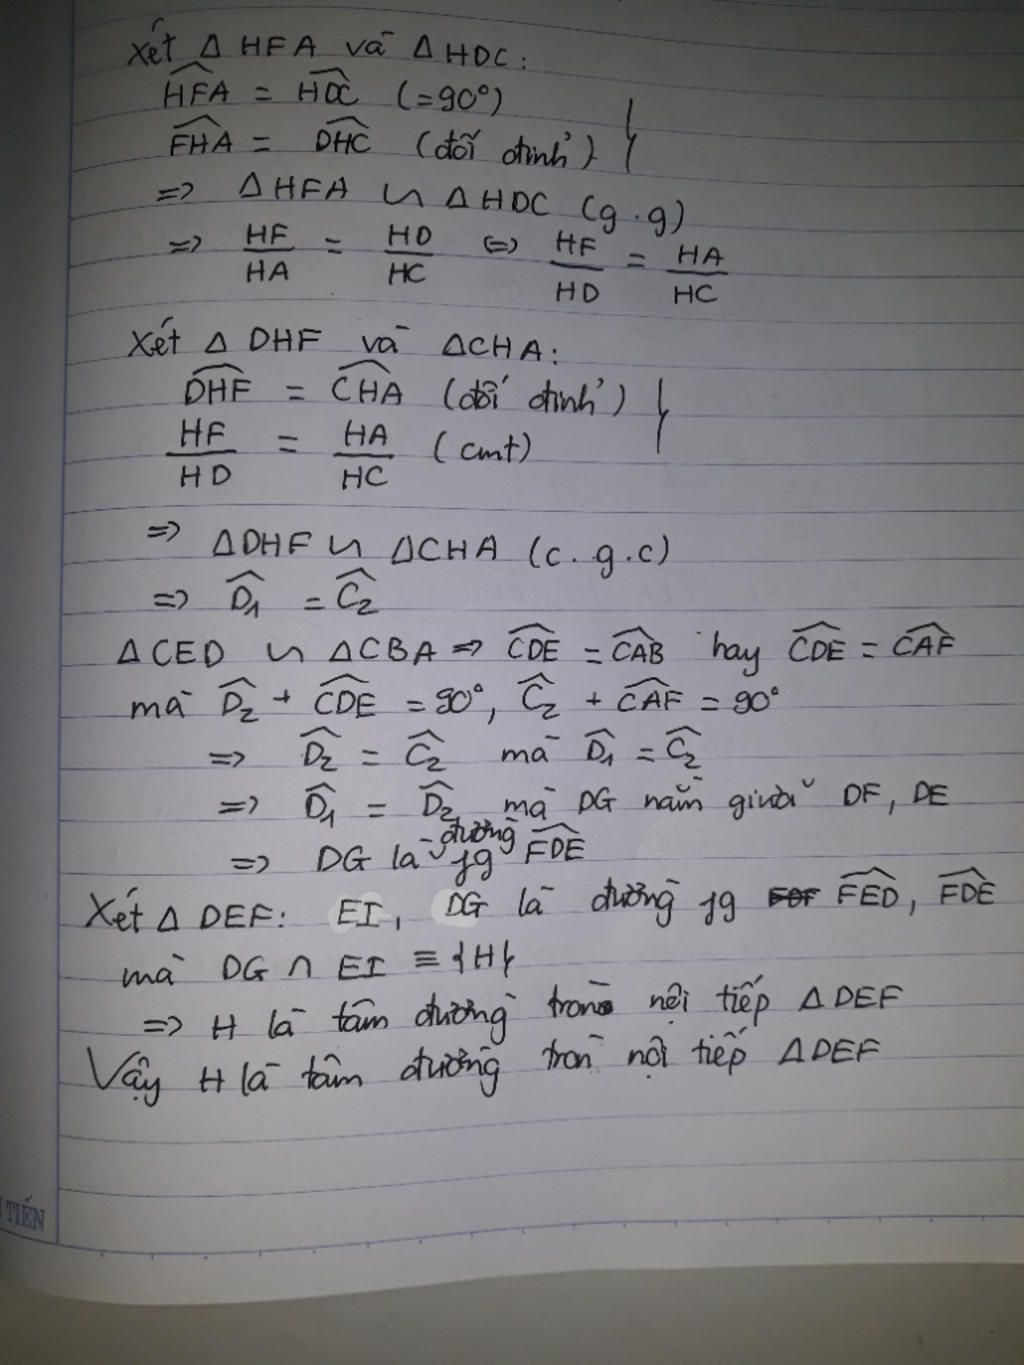 Xét Δ HFA và Δ HDC:
HFA = HDC (=90°)
FHA = DHC (đối đỉnh)
=> ΔHFA ∽ ΔHDC (g.g)
=> HF/HA = HD/HC <=> HF/HD = HA/HC
Xét Δ DHF và ΔCHA:
DHF = CHA (đối đỉnh)
HF/HD = HA/HC (cmt)
=> ΔDHF ∽ ΔCHA (c.g.c)
=> D̂₁ = Ĉ₂
ΔCED ∽ ΔCBA => CDE = CAB hay CDE = CAF
mà D̂₂ + CDE = 90°, Ĉ₂ + CAF = 90°
=> D̂₂ = Ĉ₂ mà D̂₁ = Ĉ₂
=> D̂₁ = D̂₂ mà DG nằm giữa DF, DE
=> DG là đường fg FDE
Xét Δ DEF: EI, DG là đường fg FED, FDE
mà DG ∩ EI ≡ {H}
=> H là tâm đường tròn nội tiếp ΔDEF
Vậy H là tâm đường tròn nội tiếp ΔDEF
TIẾN